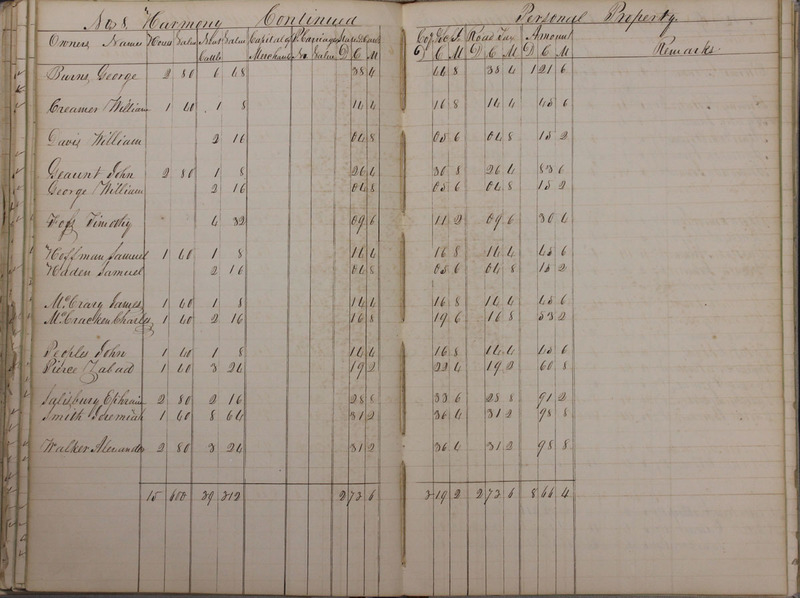 No 8 Harmony Continued Personal Property
Owners Names Horses Value Neat Cattle Value Capital of Merchants P. Carriages No. Value State & Canal D C M Co. & Sc. T. D C M Road Tax D C M Amount D C M Remarks
Burns George 2 80 6 48 38 4 44 8 38 4 1 21 6
Creamer William 1 40 1 8 14 4 16 8 14 4 45 6
Davis William 2 16 04 8 05 6 04 8 15 2
Geaunt John 2 80 1 8 26 4 30 8 26 4 83 6
George William 2 16 04 8 05 6 04 8 15 2
Timothy 4 32 09 6 11 2 09 6 30 4
Hoffman Samuel 1 40 1 8 14 4 16 8 14 4 45 6
Haden Samuel 2 16 04 8 05 6 04 8 15 2
McCrary James 1 40 1 8 14 4 16 8 14 4 45 6
McCracken Charles 1 40 2 16 16 8 19 6 16 8 53 2
Peoples John 1 40 1 8 14 4 16 8 14 4 45 6
Pierce Zabad 1 40 3 24 19 2 22 4 19 2 60 8
Salisbury Ephraim 2 80 2 16 28 8 33 6 28 8 91 2
Smith Jeremiah 1 40 8 64 31 2 36 4 31 2 98 8
Walker Alexander 2 80 3 24 31 2 36 4 31 2 98 8
15 600 39 312 2 73 6 3 19 2 2 73 6 8 66 4